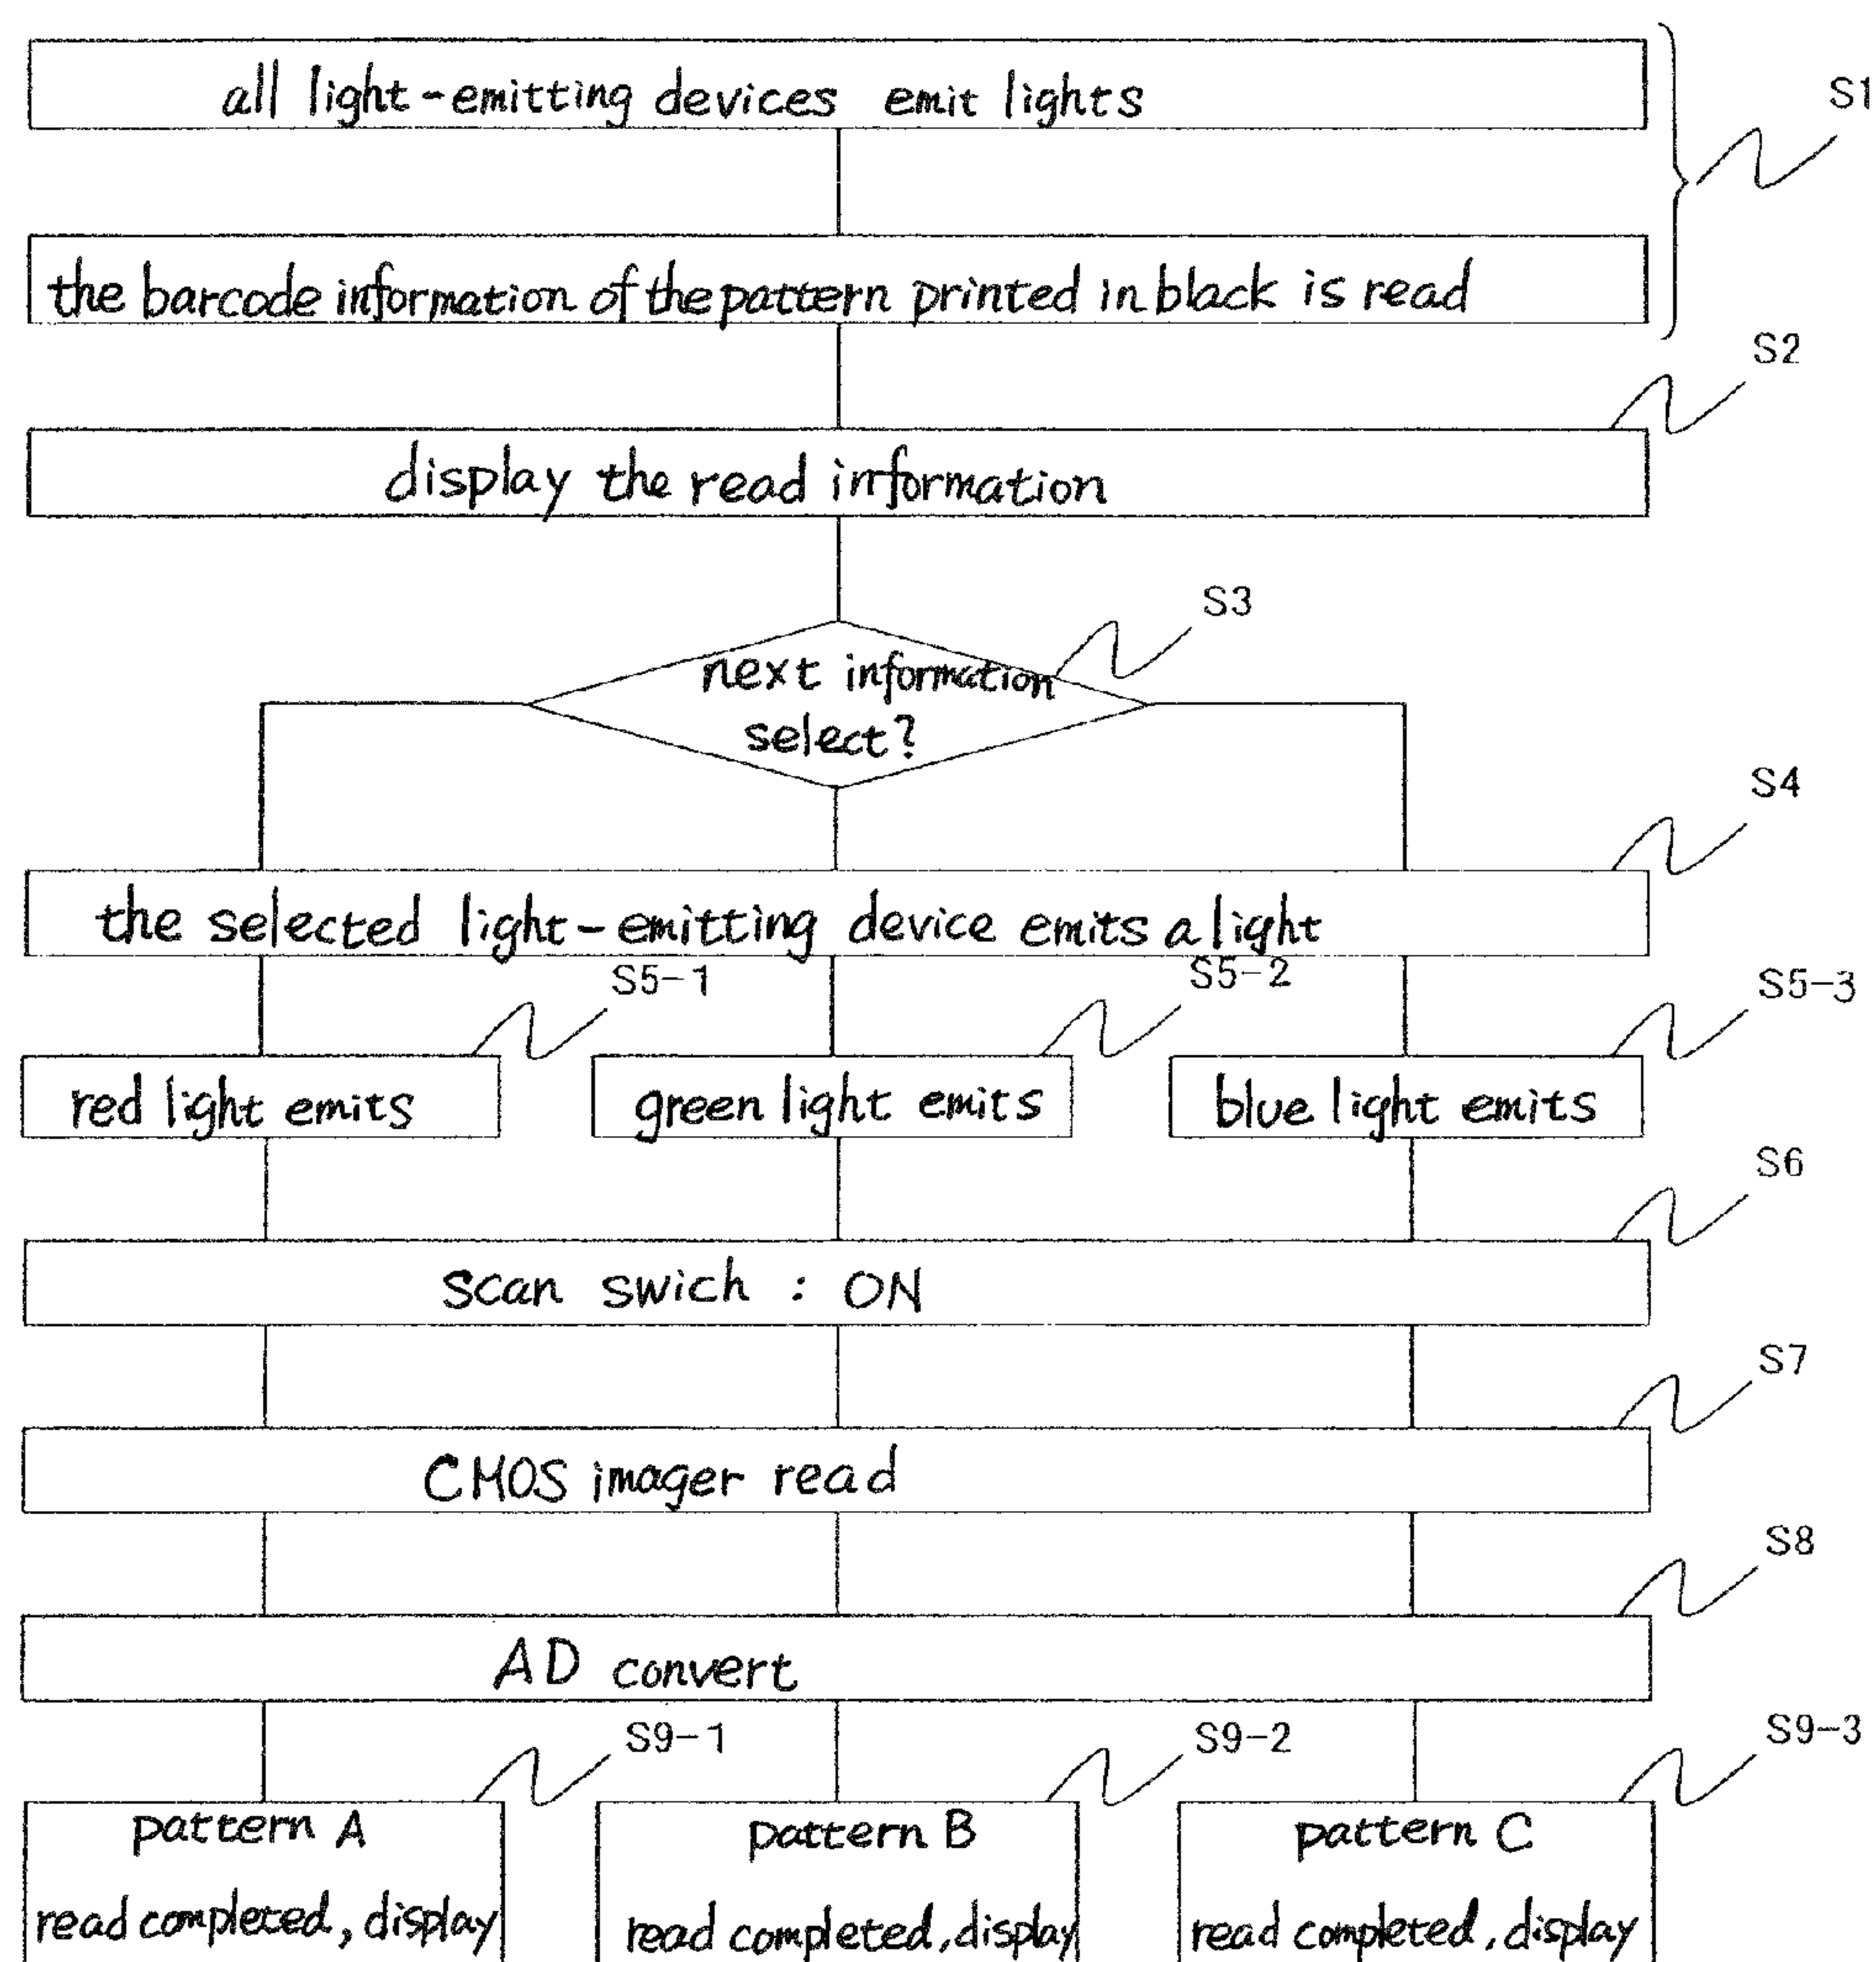 all light-emitting devices emit lights
S1
the barcode information of the pattern printed in black is read
S2
display the read information
S3
next information
select?
S4
the selected light-emitting device emits a light
S5-1
S5-2
S5-3
red light emits
green light emits
blue light emits
S6
scan swich : ON
S7
CMOS imager read
S8
AD convert
S9-1
S9-2
S9-3
pattern A
read completed, display
pattern B
read completed, display
pattern C
read completed, display